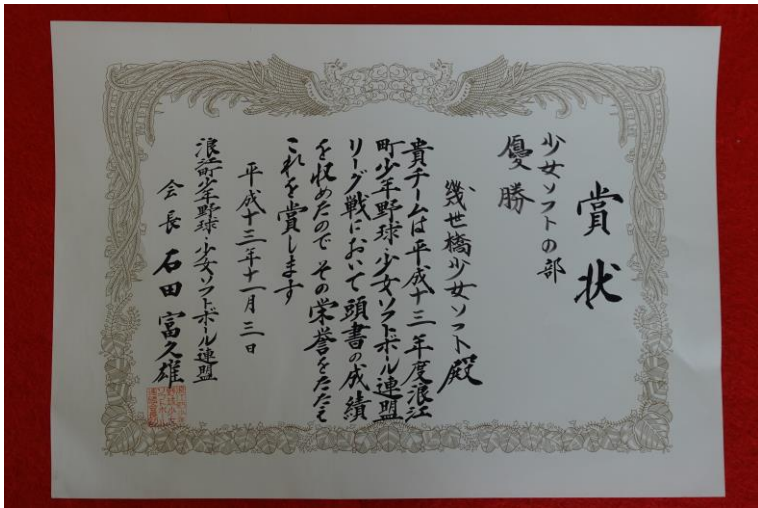 賞状
少女ソフトの部
優勝
幾世橋少女ソフト殿
貴チームは平成十三年度浪江
町少年野球・少女ソフトボール連盟
リーグ戦において頭書の成績
を収めたのでその栄誉をたたえ
これを賞します
平成十三年十一月三日
浪江町少年野球・少女ソフトボール連盟
会長 石田富久雄